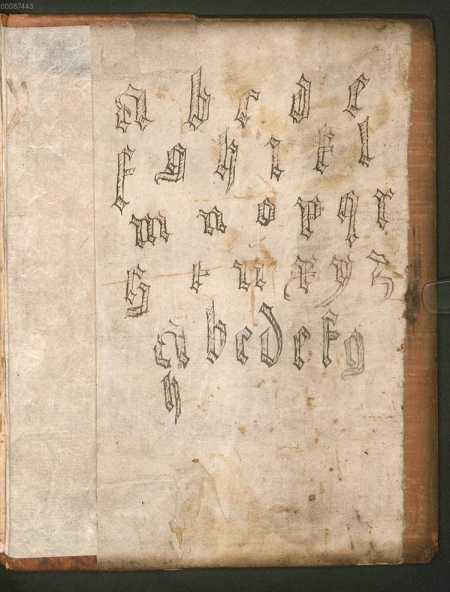 00087443
a b c d e
f g h i k l
m n o p q r
s t u x y z
a b c d e f g
h